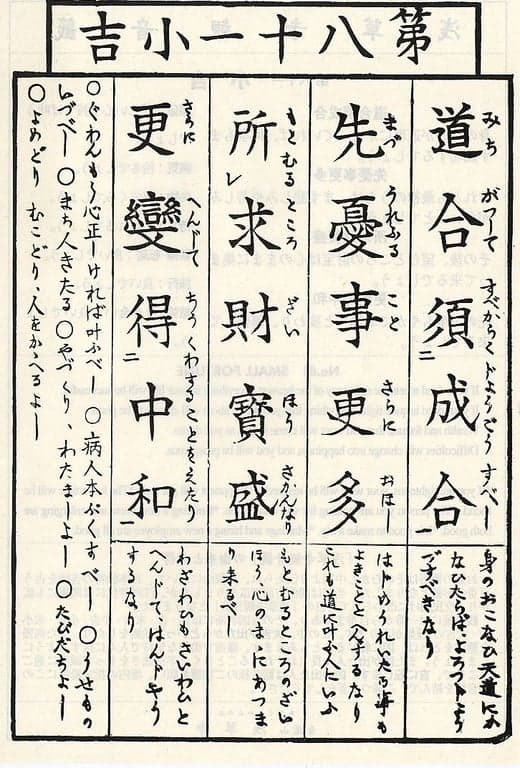 第八十一小吉
みち がつして すべからくじようごうすべし
道合須二成合
身のおこなひ天道にか
なひたらば、よろづじよう
ごすべきなり
まづ うれふる こと さらに おほし
先憂事更多
はじめうれいたる事も
よきことと へんずるなり
これも道に叶ふ人にいふ
もとむるところ ざい ほう さかんなり
所レ求財寶盛
もとむるところのざい
ほう心のまゝにあつま
り来るべし
さらに へんじて ちうくわすることをえたり
更變得二中和
わざわひもさいわひと
へんじて、はんじやう
するなり
○ぐわんもう心正しければ叶ふべし ○病人本ぶくすべし ○うせもの
いづべし ○まち人きたる ○やづくり、わたましよし ○たびだちよし
○よめどり むこどり、人をかゝへるよし